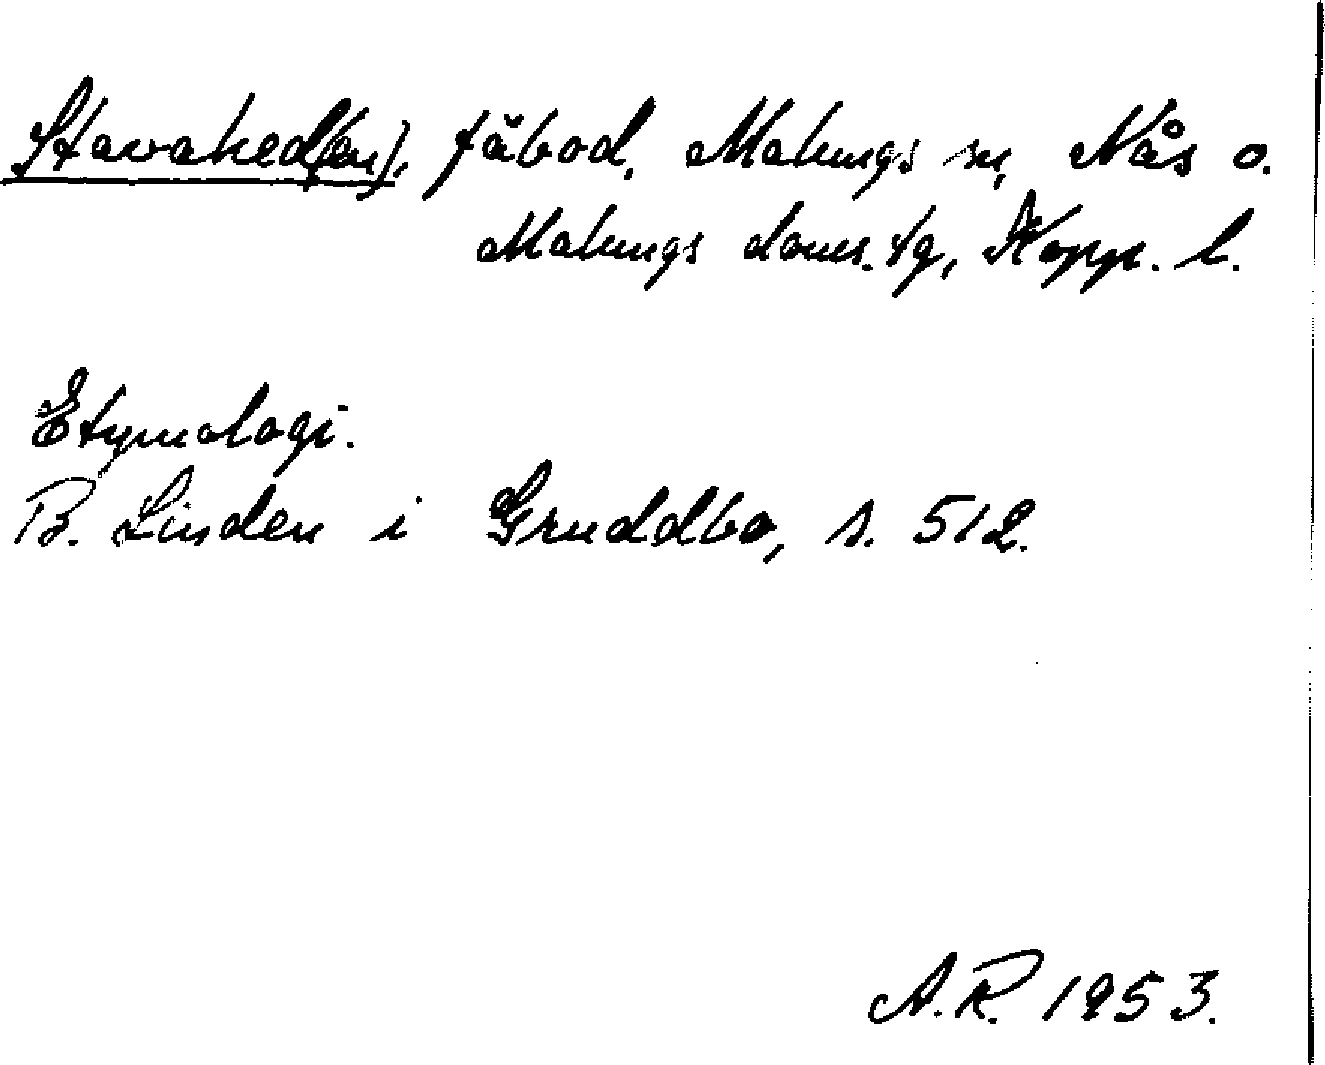 Stavahed(en), fäbod, Malungs sn, Nås o.
Malungs doms. tg, Kopp. l.
Etymologi.
B. Linden i Gruddbo, s. 512.
A.R. 1953.